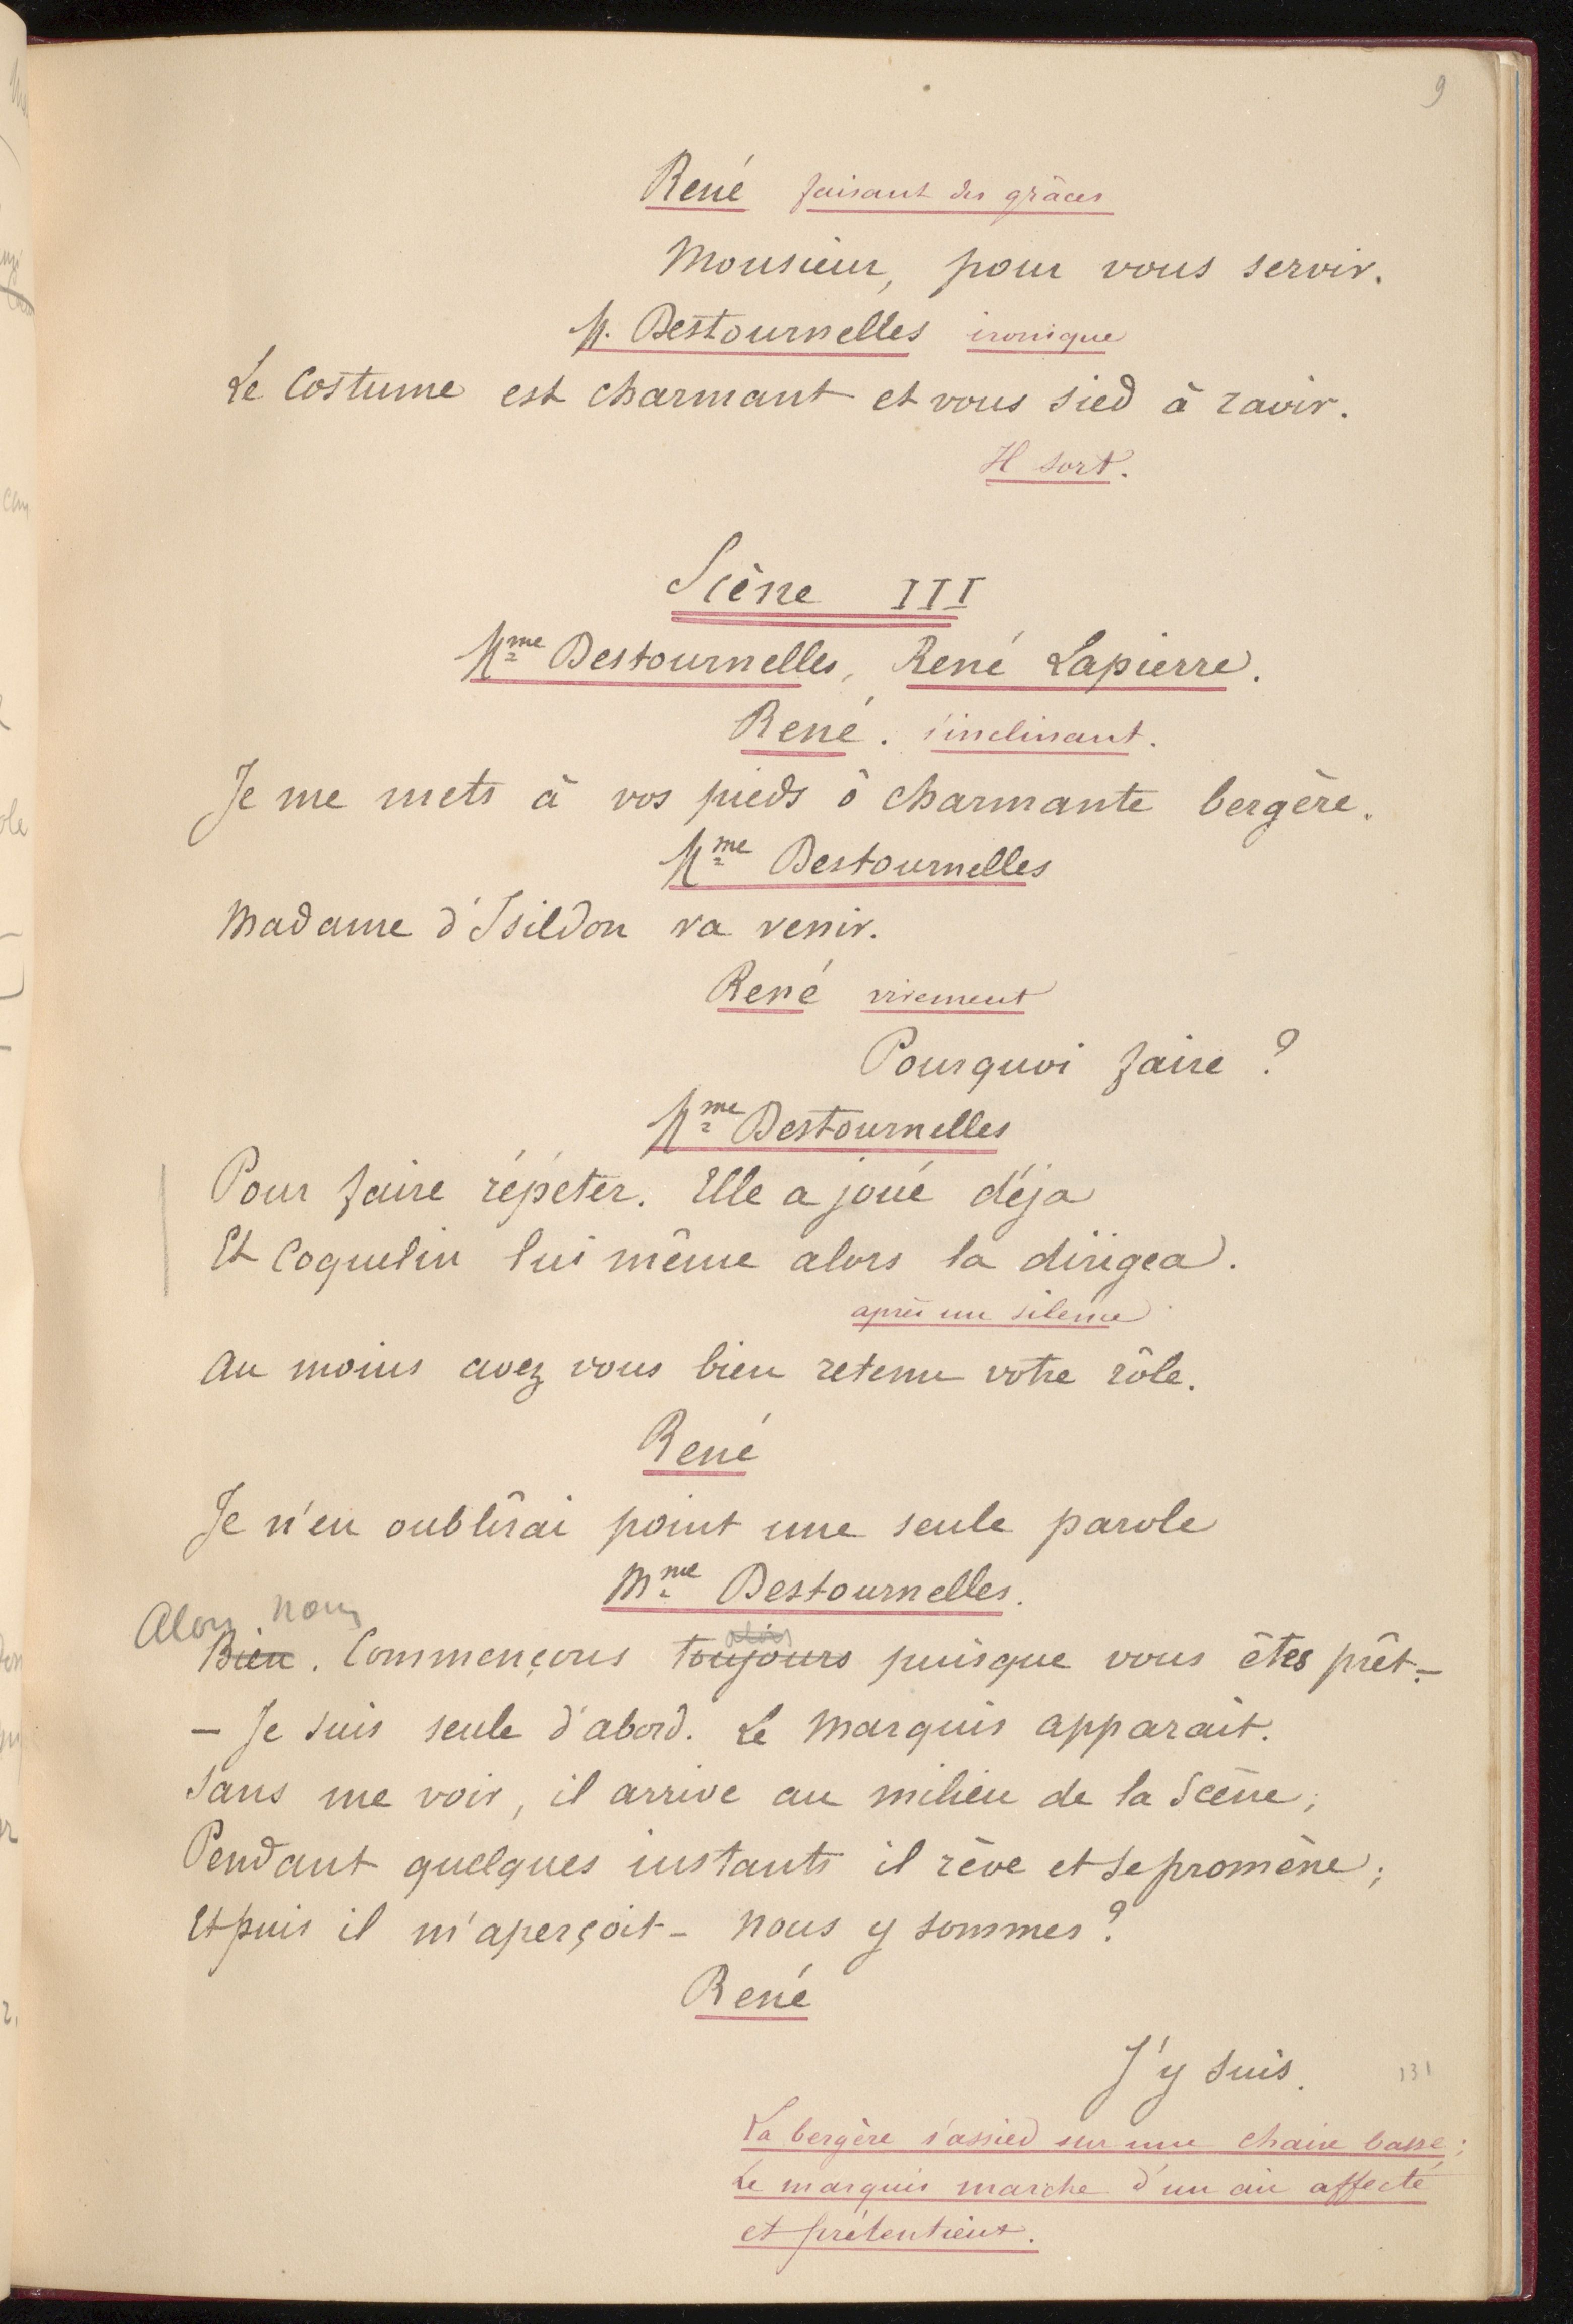 9
René faisant des grâces
Monsieur, pour vous servir.
M. Destournelles ironique
Le Costume est charmant et vous sied à ravir.
Il sort.
Scène III
Mme Destournelles, René Lapierre.
René. s'inclinant.
Je me mets à vos pieds ô charmante bergère.
Mme Destournelles
Madame d'Isildon va venir.
René vivement
Pourquoi faire ?
Mme Destournelles
Pour faire répéter. Elle a joué déja
Et Coquelin lui même alors la dirigea.
après un silence
Au moins avez vous bien retenu votre rôle.
René
Je n'en oublîrai point une seule parole
Mme Destournelles.
Alors nous alors
Bien. Commençons toujours puisque vous êtes prêt.-
- Je suis seule d'abord. Le Marquis apparait.
Sans me voir, il arrive au milieu de la Scène;
Pendant quelques instants il rêve et se promène;
Et puis il m'aperçoit - Nous y sommes ?
René
J'y suis.
131
La bergère s'assied sur une chaise basse;
Le marquis marche d'un air affecté
et prétentieux.